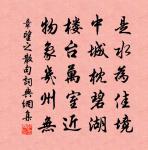 是水為佳境
中城枕碧湖
樓台萬室近
物象幾州無
章望之散句詞典網集